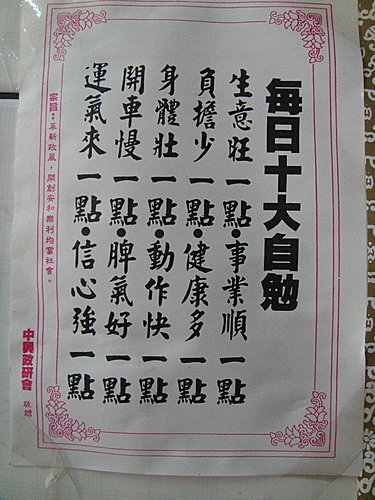 每日十大自勉
生意旺一點•事業順一點
負擔少一點•健康多一點
身體壯一點•動作快一點
開車慢一點•脾氣好一點
運氣來一點•信心強一點
宗旨：革新政風，開創安和樂利均富社會。
中興政研會 敬贈